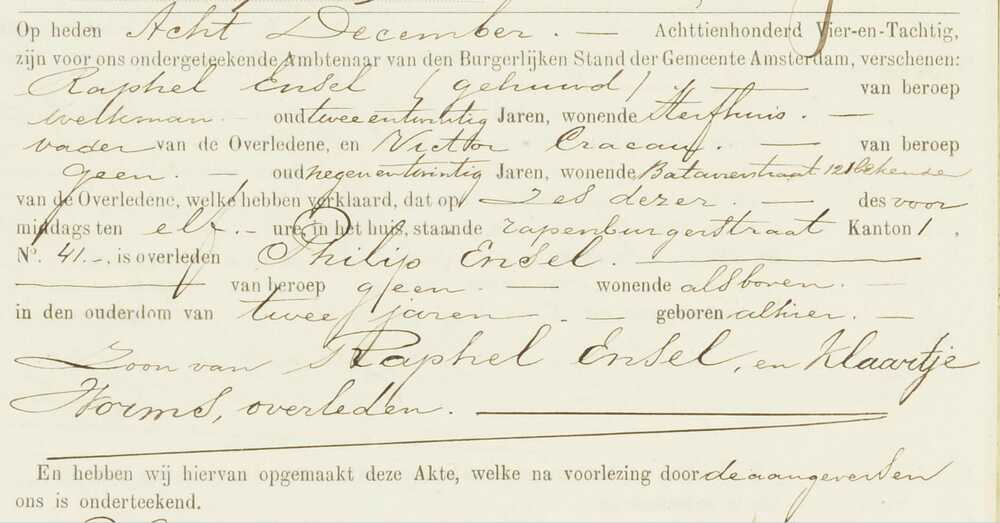 Op heden Acht December. — Achttienhonderd Vier-en-Tachtig,
zijn voor ons ondergeteekende Ambtenaar van den Burgerlijken Stand der Gemeente Amsterdam, verschenen:
Raphel Ensel (gehuwd) — van beroep
werkman. — oud tweeentwintig Jaren, wonende Sterfhuis. —
vader van de Overledene, en Victor Cracau. — van beroep
geen. — oud negenentwintig Jaren, wonende Batavierstraat 12 bekende
van de Overledene, welke hebben verklaard, dat op Zes dezer. — des voor
middags ten elf. — ure, in het huis, staande Zapenburgerstraat Kanton 1,
No. 41.-, is overleden Philip Ensel. —
— van beroep geen. — wonende als boven. —
in den ouderdom van twee jaren. — geboren alhier. —
Zoon van Raphel Ensel, en Klaartje
Worms, overleden. —
En hebben wij hiervan opgemaakt deze Akte, welke na voorlezing door de aangevers en
ons is onderteekend.